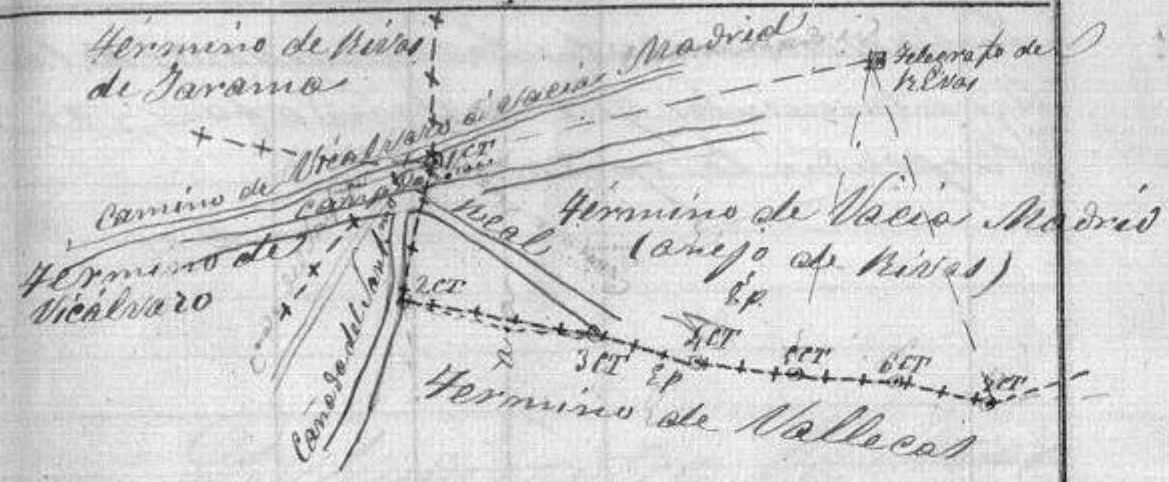 Término de Rivas
de Jarama
Camino de Vicálvaro á Vacia Madrid
Telegrafo de
Rivas
1 CT
Cañada
Real
Término de
Vicálvaro
Término de Vacia Madrid
(anejo de Rivas)
E.P.
2 CT
3 CT
E.P.
4 CT
5 CT
6 CT
7 CT
Cañada del
Término de Vallecas